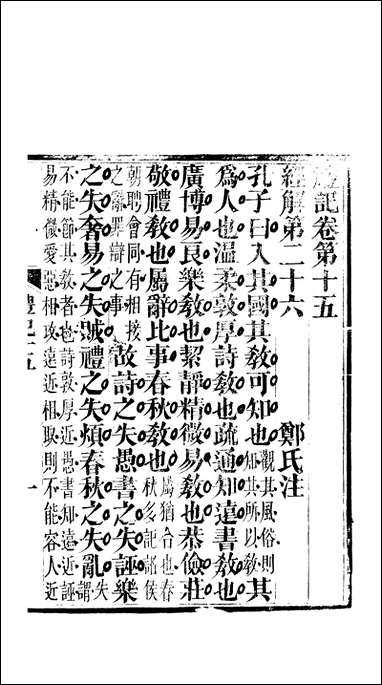 禮記卷第十五
經解第二十六　鄭氏注
孔子曰入其國其教可知也觀其風俗則知其所以教其
爲人也溫柔敦厚詩教也疏通知遠書教也
廣博易良樂教也絜靜精微易教也恭儉莊
敬禮教也屬辭比事春秋教也屬猶合也春秋多記諸侯
朝聘會同有相接之辭罪辯之事故詩之失愚書之失誣樂
之失奢易之失賊禮之失煩春秋之失亂失謂
不能節其教者也詩敦厚近愚書知遠近誣
易精微愛惡相攻遠近相取則不能容人近
禮記十五　一